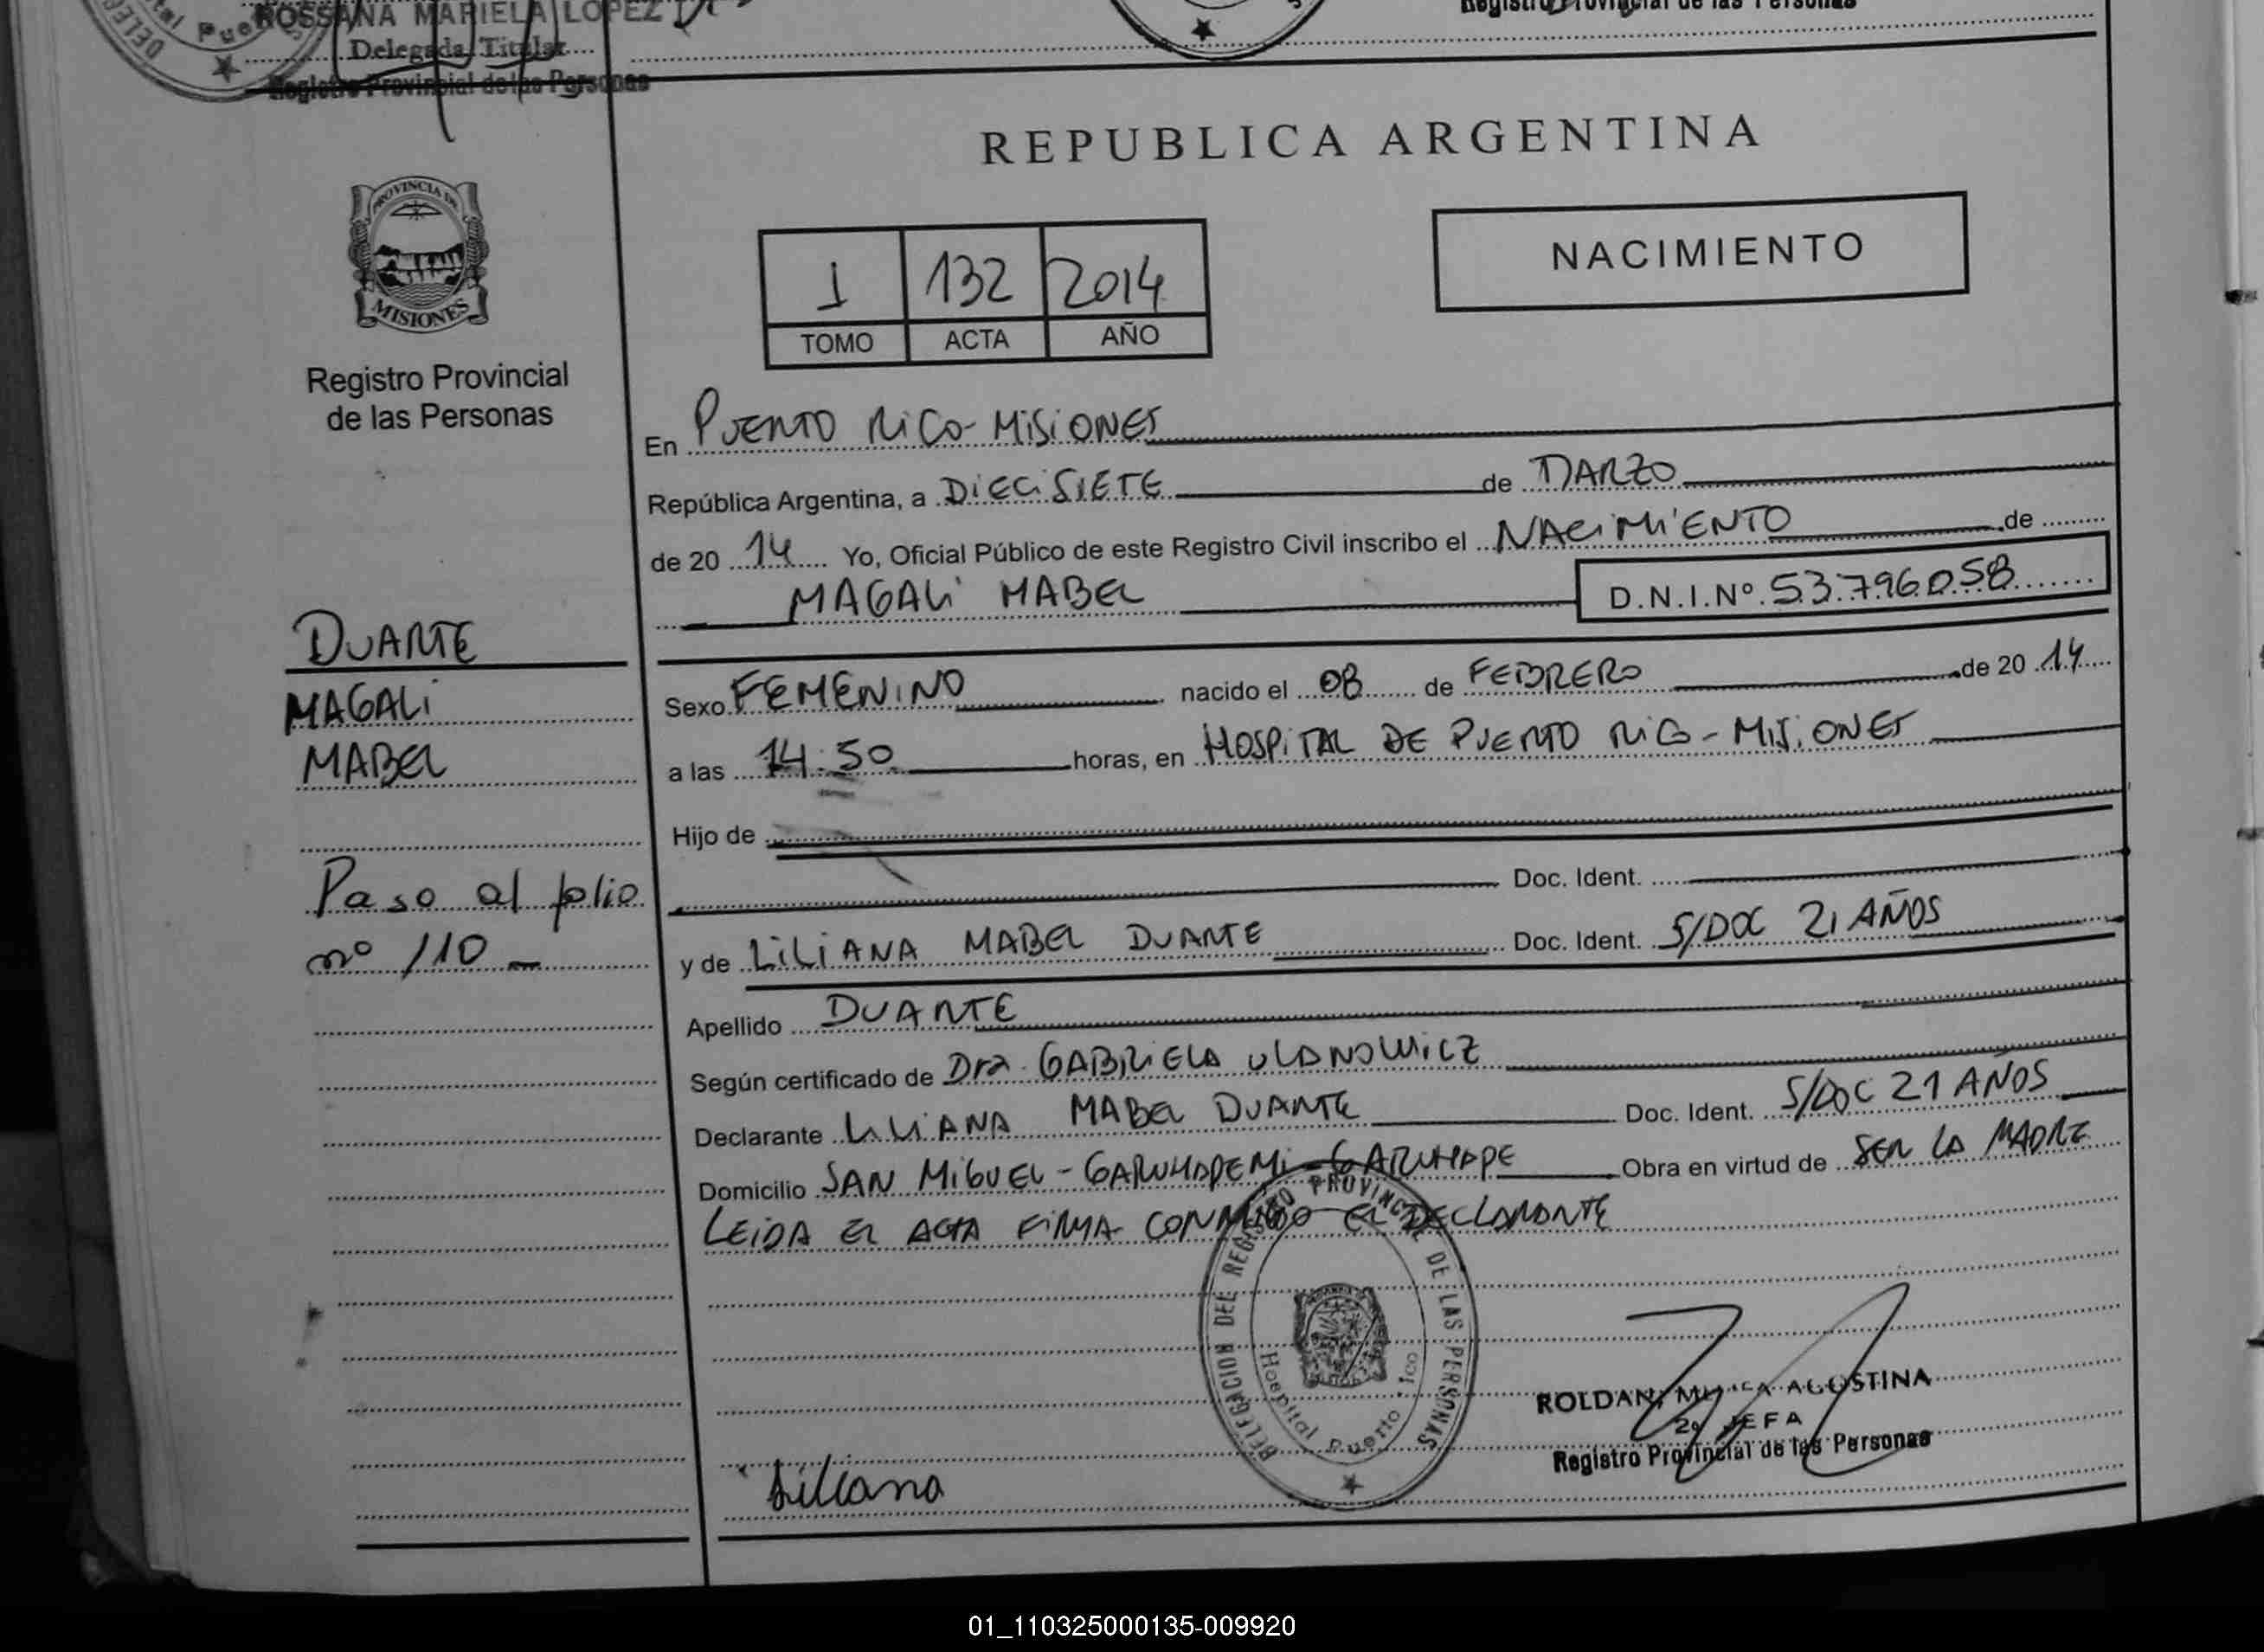 ROSSANA MARIELA LOPEZ
Delegada Titular
Registro Provincial de las Personas
Registro Provincial de las Personas
REPUBLICA ARGENTINA
PROVINCIA DE
MISIONES
Registro Provincial
de las Personas
1 132 2014
TOMO ACTA AÑO
NACIMIENTO
En PUERTO RICO - MISIONES
República Argentina, a DIECISIETE de MARZO
de 20 14 Yo, Oficial Público de este Registro Civil inscribo el NACIMIENTO de
MAGALI MABEL D.N.I.Nº 53.796.058
DUARTE
MAGALI
MABEL
Paso al folio
nº 110
Sexo FEMENINO nacido el 08 de FEBRERO de 20 14
a las 14:50 horas, en HOSPITAL DE PUERTO RICO - MISIONES
Hijo de
Doc. Ident.
y de LILIANA MABEL DUARTE Doc. Ident. S/DOC 21 AÑOS
Apellido DUARTE
Según certificado de Dra. GABRIELA ULANOWICZ
Declarante LILIANA MABEL DUARTE Doc. Ident. S/DOC 21 AÑOS
Domicilio SAN MIGUEL - GARUHAPEMI - GARUHAPE Obra en virtud de SER LA MADRE
LEIDA EL ACTA FIRMA CONMIGO EL DECLARANTE
DELEGACION DEL REGISTRO PROVINCIAL DE LAS PERSONAS
Hospital Puerto Rico
ROLDAN, AGOSTINA
2º JEFA
Registro Provincial de las Personas
Liliana
01_110325000135-009920